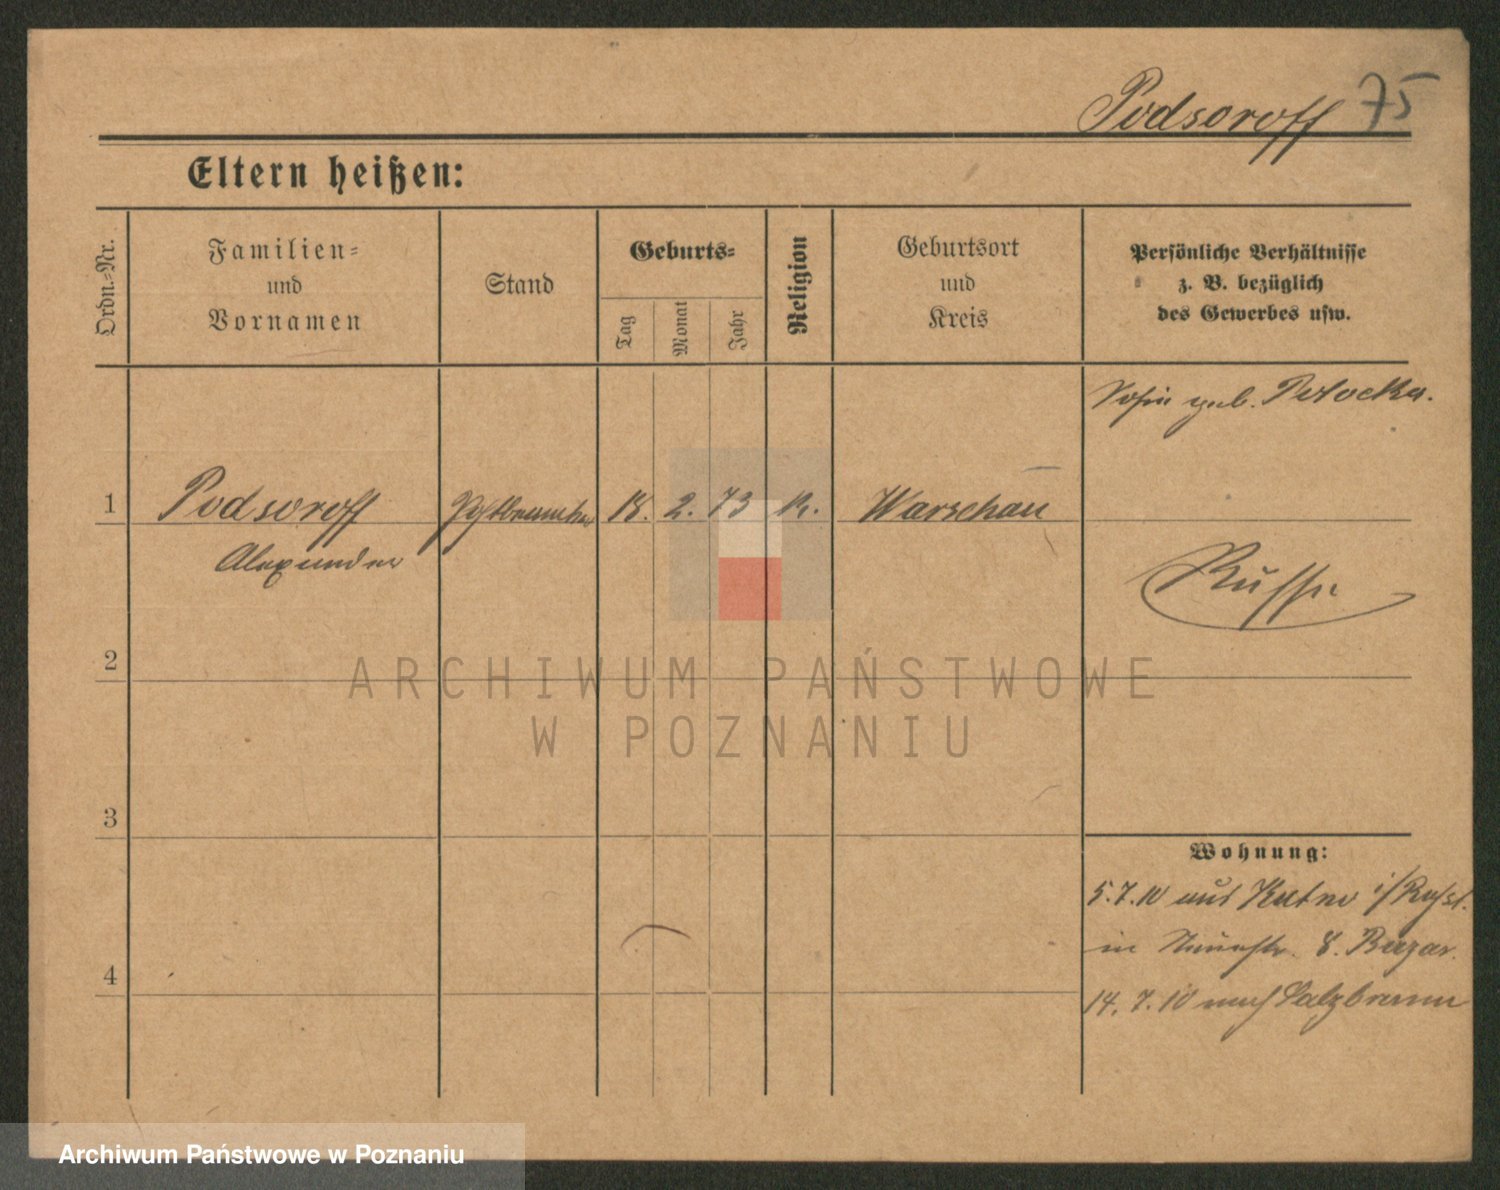 Podsoroff 75
Eltern heißen:
Ordn.-Nr.
Familien-
und
Vornamen
Stand
Geburts-
Tag
Monat
Jahr
Religion
Geburtsort
und
Kreis
Persönliche Verhältnisse
z. B. bezüglich
des Gewerbes usw.
Sofie geb. Potocka.
1 Podsoroff Postbeamter 18. 2. 73 K. Warschau
Alexander
Russe
2
3
Wohnung:
5.7.10 aus Kutno i/Russl.
in Neuestr. 8. Bazar.
4
14.7.10 nach Salzbrunn
ARCHIWUM PAŃSTWOWE
W POZNANIU
Archiwum Państwowe w Poznaniu